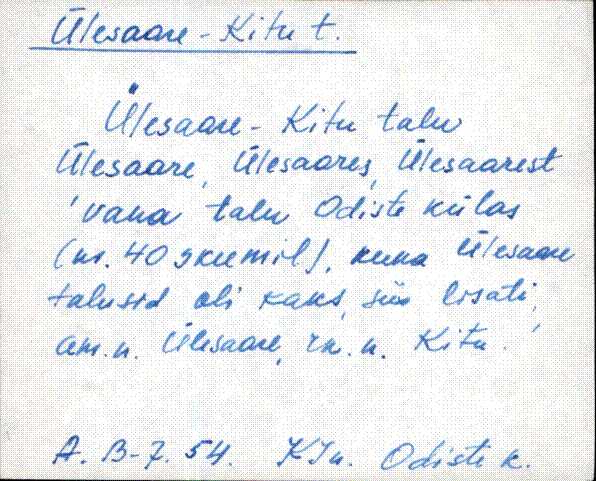 Ülesaare-Kitu t.
Ülesaare-Kitu talu
Ülesaare, Ülesaares, Ülesaarest
'vana talu Odiste külas
(nr. 40 skeemil), kuna Ülesaare
talusid oli kaks, siis lisati,
am.n. Ülesaare, rn.n. Kitu.'
A. B-7. 54. KJn. Odiste k.